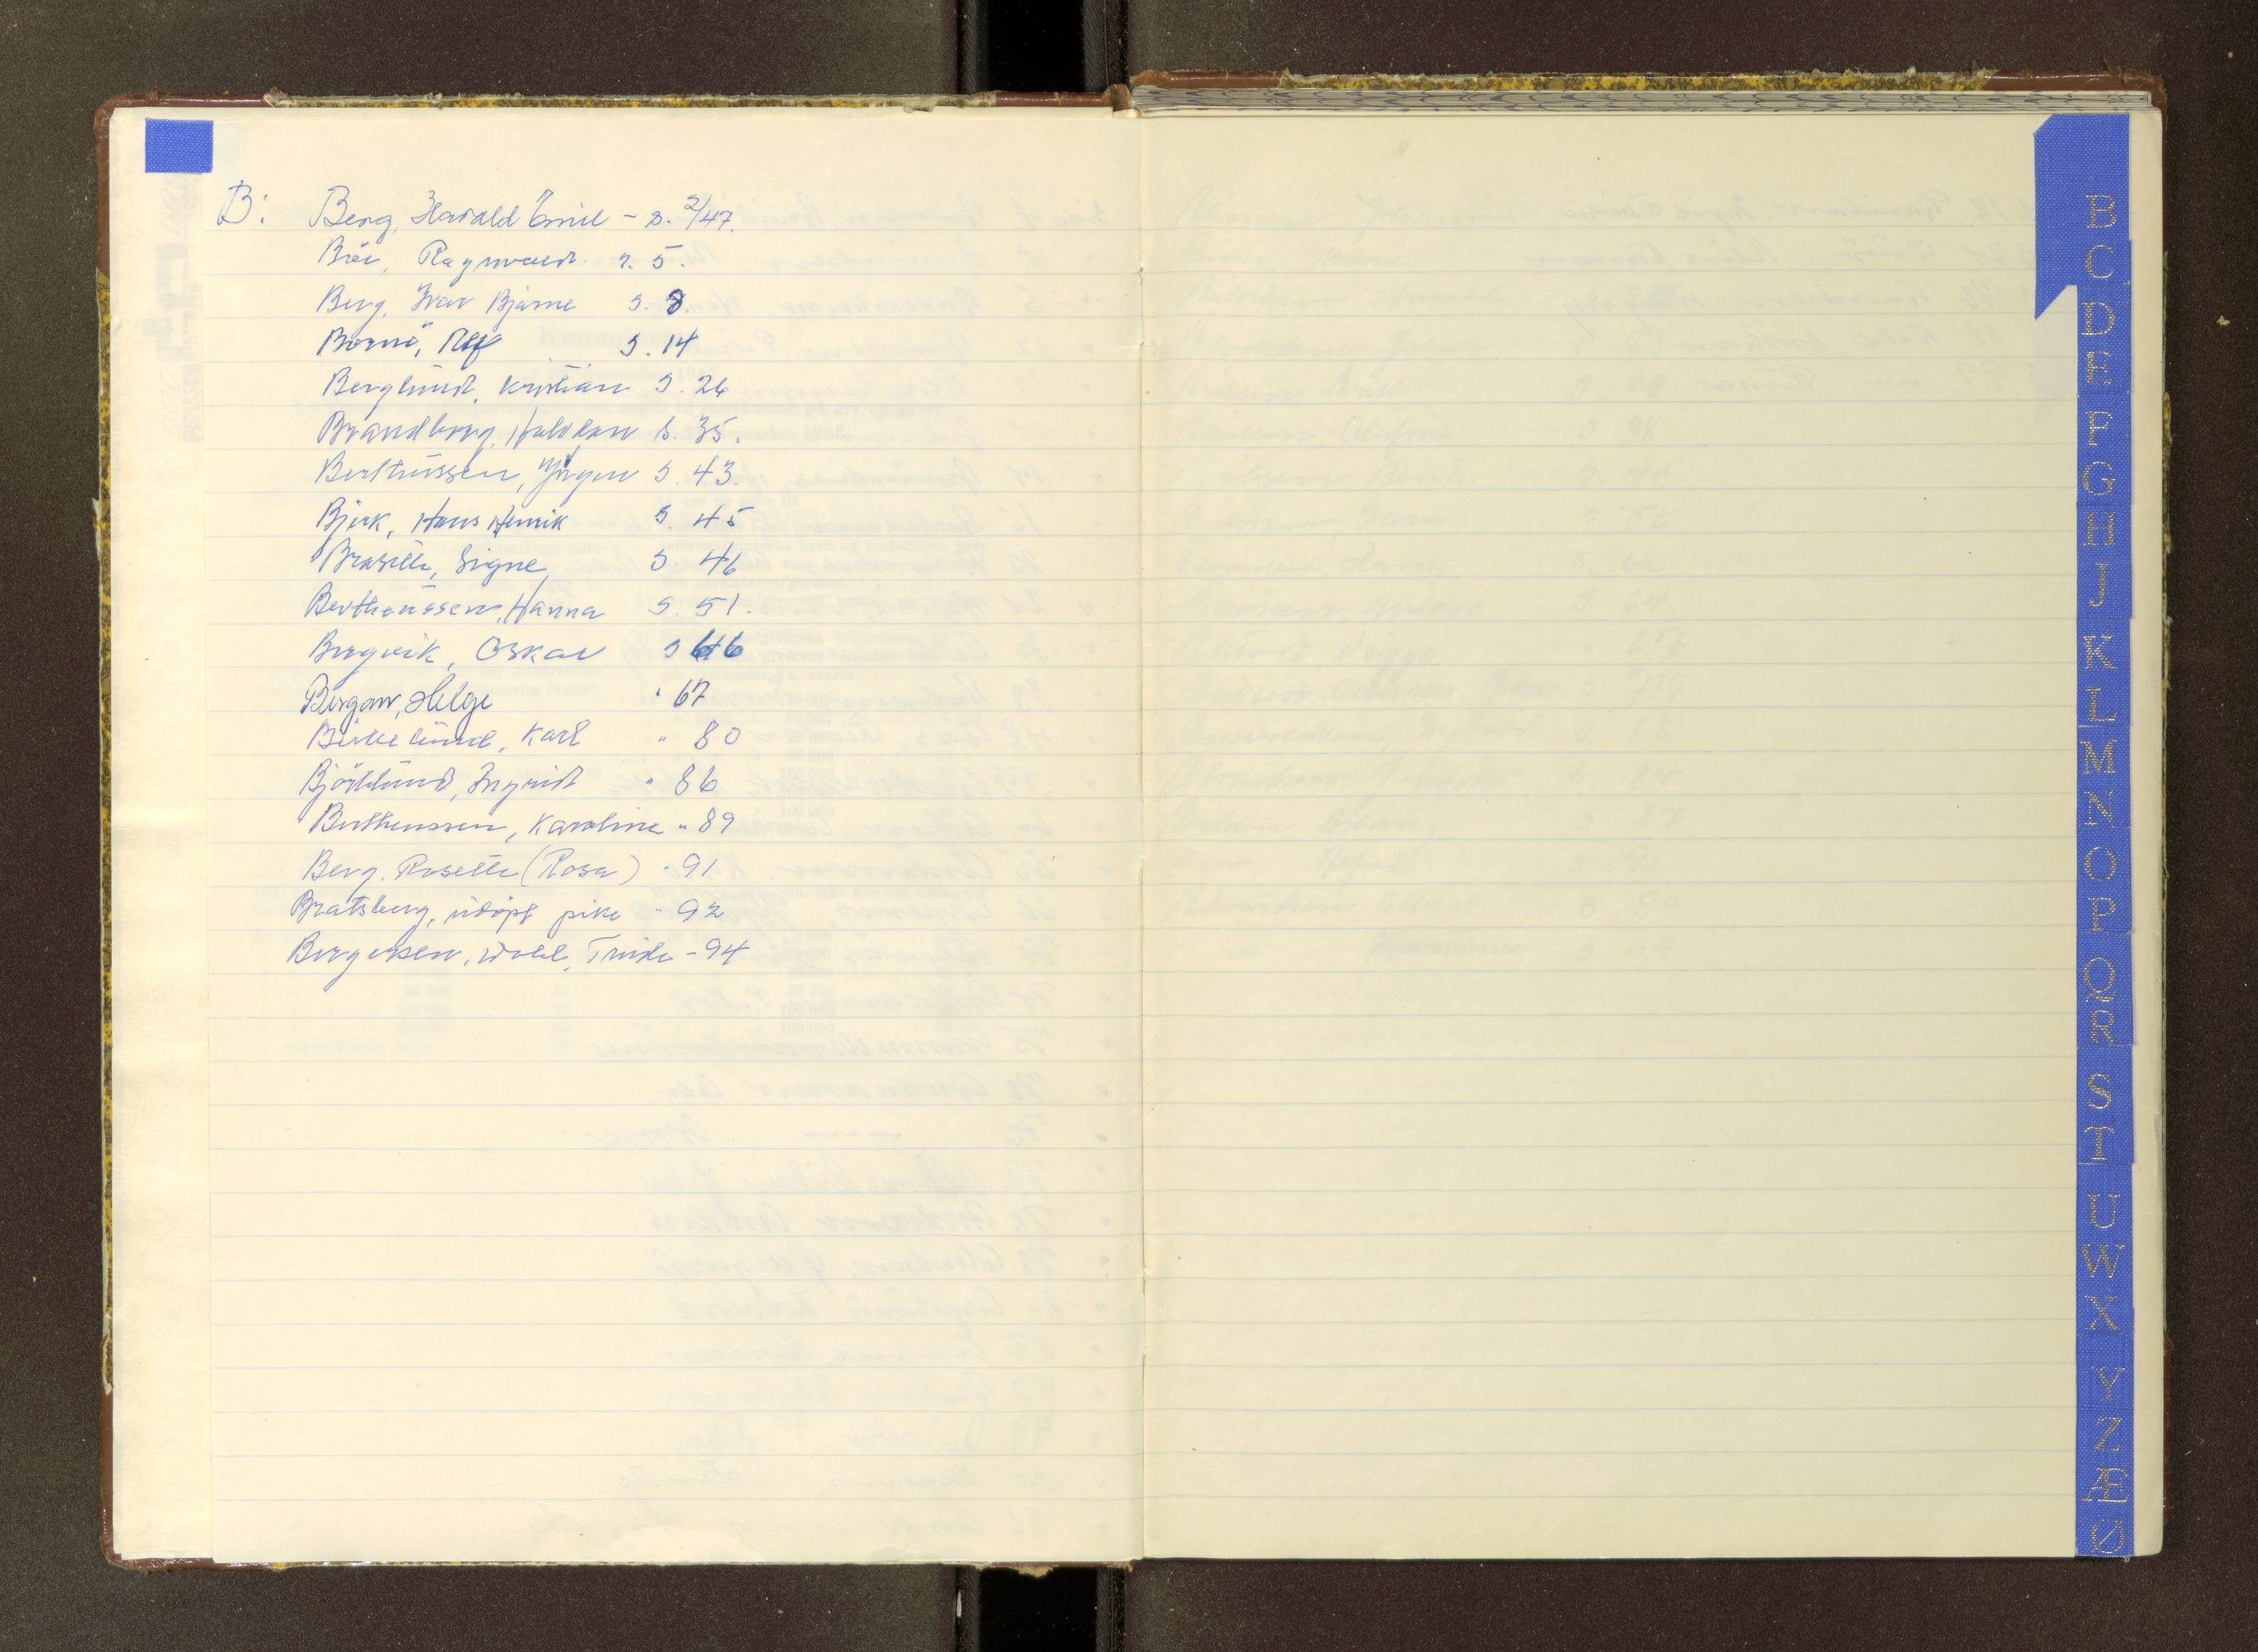 B: Berg, Harald Emil - s. 2/47.
Bøe, Ragnvald. s. 5.
Berg, Ivar Bjarne s. 8.
Bornø, Alf s. 14
Berglund, Kristian s. 26
Brandborg, Halvdan s. 35.
Berthussen, Jørgen s. 43.
Bjerk, Hans Henrik s. 45
Signe s 46
Bertheussen, Hanna s. 51.
Bergvik, Oskar s 66
Bergan, Helge " 67
Birkelund, Karl " 80
Björklund, Ingrid " 86
Bertheussen, Karoline " 89
Berg. Rosette (Rosa) " 91
Bratsberg, udøpt pike " 92
Bergersen, Wold, Trude - 94
B
C
D
E
F
G
H
J
K
L
M
N
O
P
Q
R
S
T
U
W
X
Y
Z
Æ
Ø